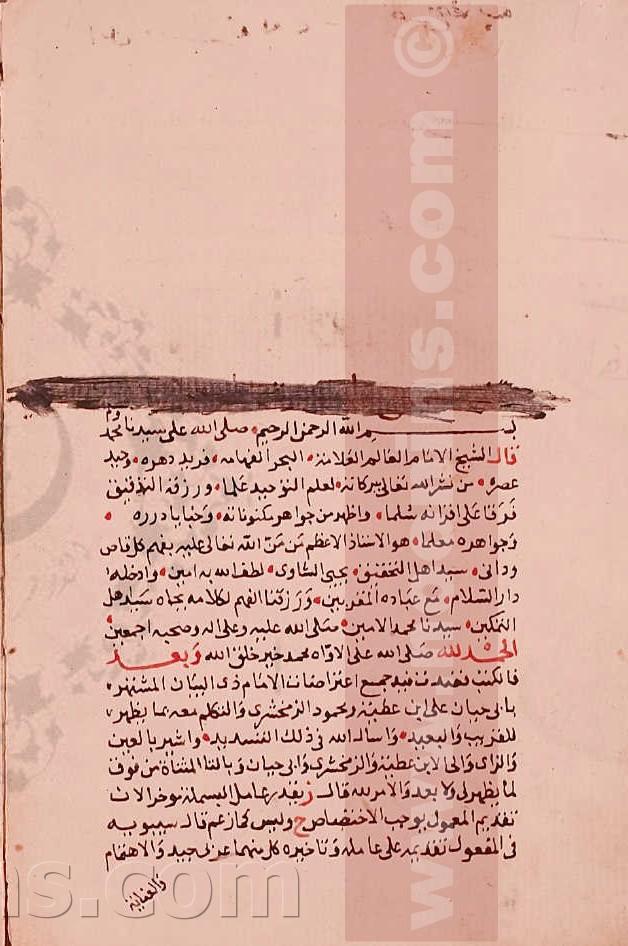 بسم الله الرحمن الرحيم صلى الله على سيدنا محمد
قال الشيخ الامام العالم العلامة البحر الفهامه فريد دهره وحيد
عصره من نشر الله تعالى ببركاته لعلم التوحيد علما ورزقه التدقيق
فرقا على اقرانه سلما واظهر من جواهر مكنوناته وخبايا درره
وجواهره معلما هو الاستاذ الاعظم من من الله تعالى عليه بفهم كل قاص
ودانى سيد اهل التحقيق يحيى الشاوى لطف الله به امين وادخله
دار السلام مع عباده المقربين ورزقنا الفهم لكلامه بجاه سيد اهل
التمكين سيدنا محمد الامين صلى الله عليه وعلى اله وصحبه اجمعين
الحمد لله صلى الله على الاواه محمد خير خلق الله وبعد
فالكتب قصدت فيه جميع اعتراضات الامام ذى البيان المشتهر
بابى حيان على ابن عطية ومحمود الزمخشرى والتكلم معه بما يظهر
للقريب والبعيد واسال الله فى ذلك التسديد واشير بالعين
والزاى والحا لابن عطية والزمخشرى وابى حيان وبالتا المثناة من فوق
لما يظهر لى ولا بعد والامر لله قال ز يقدر عامل البسملة موخرا لان
تقديم المعمول يوجب الاختصاص ح وليس كما زعم قال سيبويه
فى المفعول تقديمه على عامله وتاخيره كل منهما عربى جيد والاهتمام
والعناية
www.
ns.com
.com ©